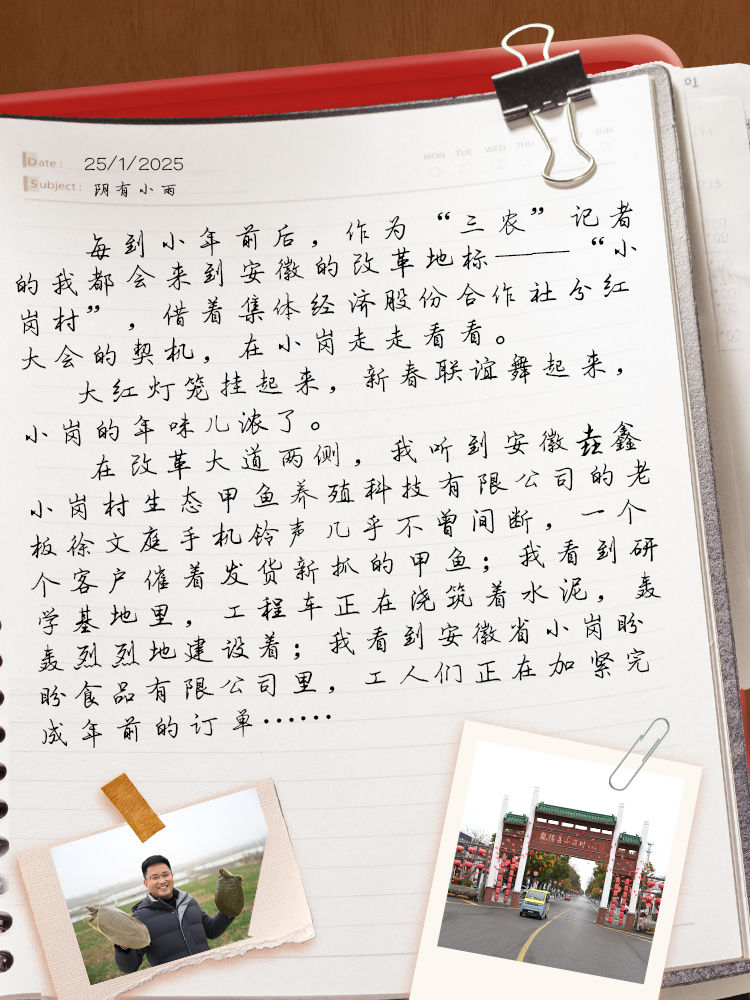 To
MON TUE WED THU SUN
Date: 25/1/2025
Subject: 阴有小雨
每到小年前后，作为“三农”记者
的我都会来到安徽的改革地标——“小
岗村”，借着集体经济股份合作社分红
大会的契机，在小岗走走看看。
大红灯笼挂起来，新春联谊舞起来，
小岗的年味儿浓了。
在改革大道两侧，我听到安徽垚鑫
小岗村生态甲鱼养殖科技有限公司的老
板徐文庭手机铃声几乎不曾间断，一个
个客户催着发货新抓的甲鱼；我看到研
学基地里，工程车正在浇筑着水泥，轰
轰烈烈地建设着；我看到安徽省小岗盼
盼食品有限公司里，工人们正在加紧完
成年前的订单……